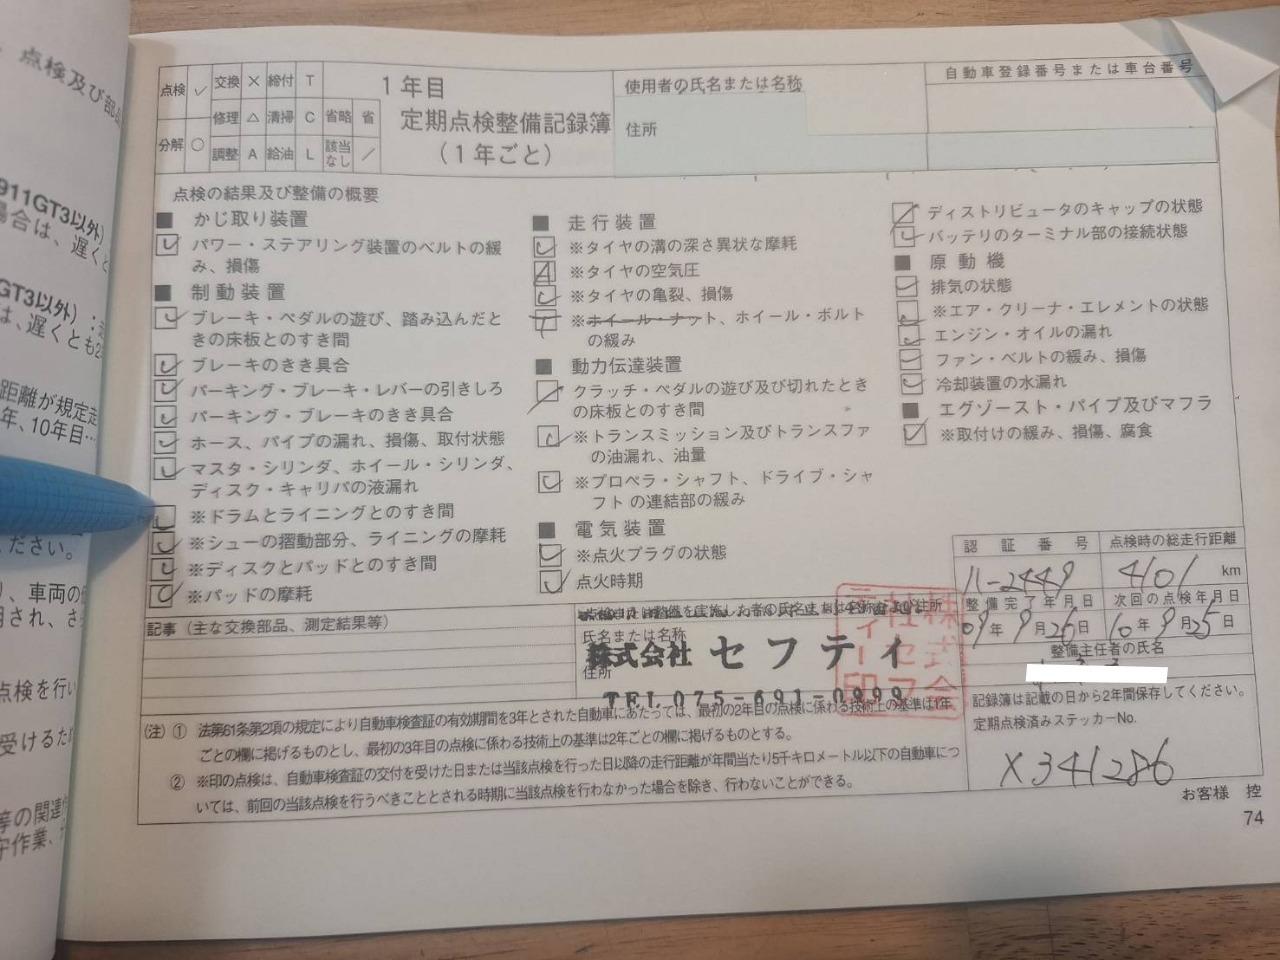 点検及び部
911GT3以外)
場合は、遅くと
GT3以外)：
は、遅くとも2
距離が規定走
年、10年目…
ださい。
、車両の
用され、さ
点検を行い
受けるた
等の関連
守作業、
点検 ✓ 交換 X 締付 T
修理 △ 清掃 C 省略 省
分解 ○ 調整 A 給油 L 該当なし /
1年目
定期点検整備記録簿
(1年ごと)
使用者の氏名または名称
住所
自動車登録番号または車台番号
点検の結果及び整備の概要
■ かじ取り装置
パワー・ステアリング装置のベルトの緩
み、損傷
■ 制動装置
ブレーキ・ペダルの遊び、踏み込んだと
きの床板とのすき間
ブレーキのきき具合
パーキング・ブレーキ・レバーの引きしろ
パーキング・ブレーキのきき具合
ホース、パイプの漏れ、損傷、取付状態
マスタ・シリンダ、ホイール・シリンダ、
ディスク・キャリパの液漏れ
※ドラムとライニングとのすき間
※シューの摺動部分、ライニングの摩耗
※ディスクとパッドとのすき間
※パッドの摩耗
■ 走行装置
※タイヤの溝の深さ異状な摩耗
A ※タイヤの空気圧
※タイヤの亀裂、損傷
T ※ホイール・ナット、ホイール・ボルト
の緩み
■ 動力伝達装置
クラッチ・ペダルの遊び及び切れたとき
の床板とのすき間
※トランスミッション及びトランスファ
の油漏れ、油量
※プロペラ・シャフト、ドライブ・シャ
フトの連結部の緩み
■ 電気装置
※点火プラグの状態
点火時期
ディストリビュータのキャップの状態
バッテリのターミナル部の接続状態
■ 原動機
排気の状態
※エア・クリーナ・エレメントの状態
エンジン・オイルの漏れ
ファン・ベルトの緩み、損傷
冷却装置の水漏れ
■ エグゾースト・パイプ及びマフラ
※取付けの緩み、損傷、腐食
認証番号 点検時の総走行距離
11-2449 4101 km
整備完了年月日 次回の点検年月日
09年9月26日 10年9月25日
整備主任者の氏名
記録簿は記載の日から2年間保存してください。
定期点検済みステッカーNo.
X341286
記事（主な交換部品、測定結果等）
氏名または名称
株式会社 セフティ
住所
TEL 075-691-0999
株式会社セフティー印
(注) ① 法第61条第2項の規定により自動車検査証の有効期間を3年とされた自動車にあたっては、最初の2年目の点検に係わる技術上の基準は1年
ごとの欄に掲げるものとし、最初の3年目の点検に係わる技術上の基準は2年ごとの欄に掲げるものとする。
② ※印の点検は、自動車検査証の交付を受けた日または当該点検を行った日以降の走行距離が年間当たり5千キロメートル以下の自動車につ
いては、前回の当該点検を行うべきこととされる時期に当該点検を行わなかった場合を除き、行わないことができる。
お客様 控
74